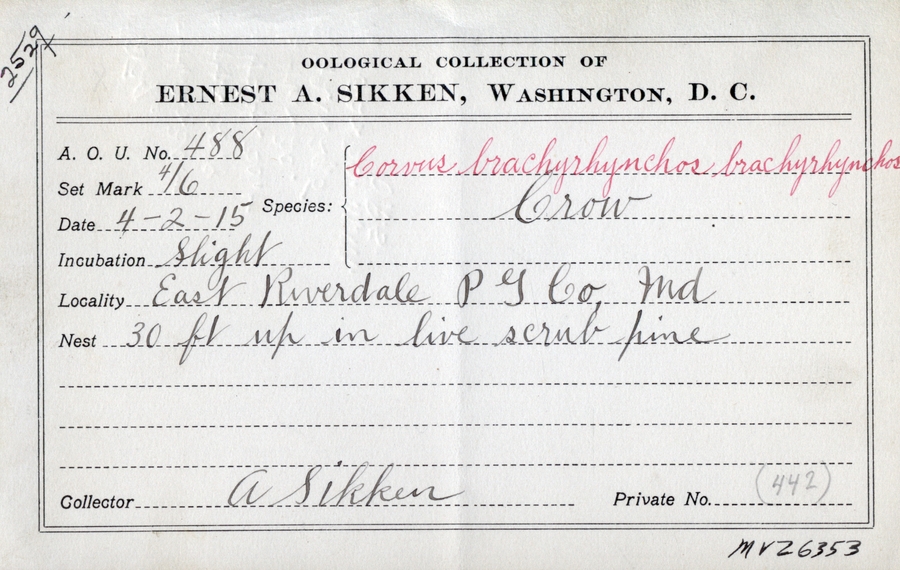 2529
OOLOGICAL COLLECTION OF
ERNEST A. SIKKEN, WASHINGTON, D. C.
A. O. U. No. 488
Set Mark 4/6
Date 4-2-15
Incubation Slight
Species: Corvus brachyrhynchos brachyrhynchos
Crow
Locality East Riverdale P G Co, Md
Nest 30 ft up in live scrub pine
Collector A Sikken
Private No. (442)
MVZ6353